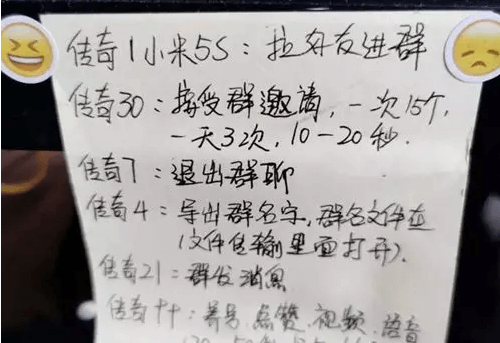 传奇1小米5S：拉好友进群
传奇30：接受群邀请，一次15个，
一天3次，10-20秒.
传奇7：退出群聊
传奇4：导出群名字，群名文件在
(文件传输里面打开).
传奇21：群发消息
传奇十十：养号、点赞、视频、语音